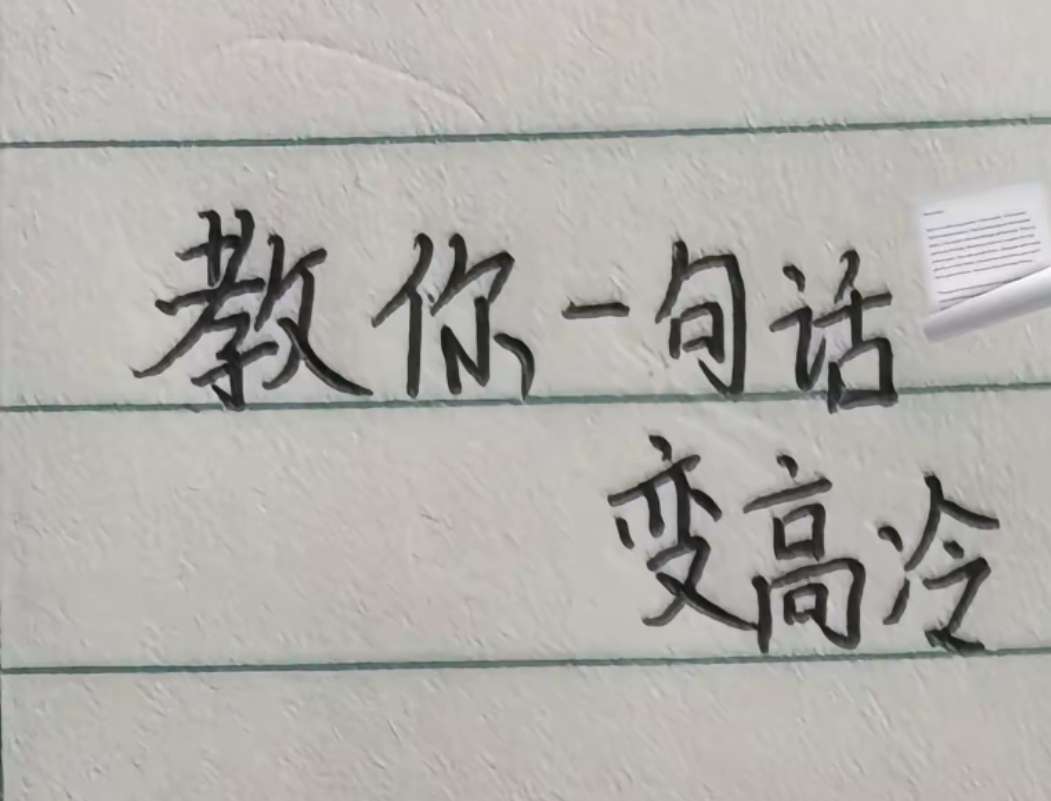 教你一句话
变高冷